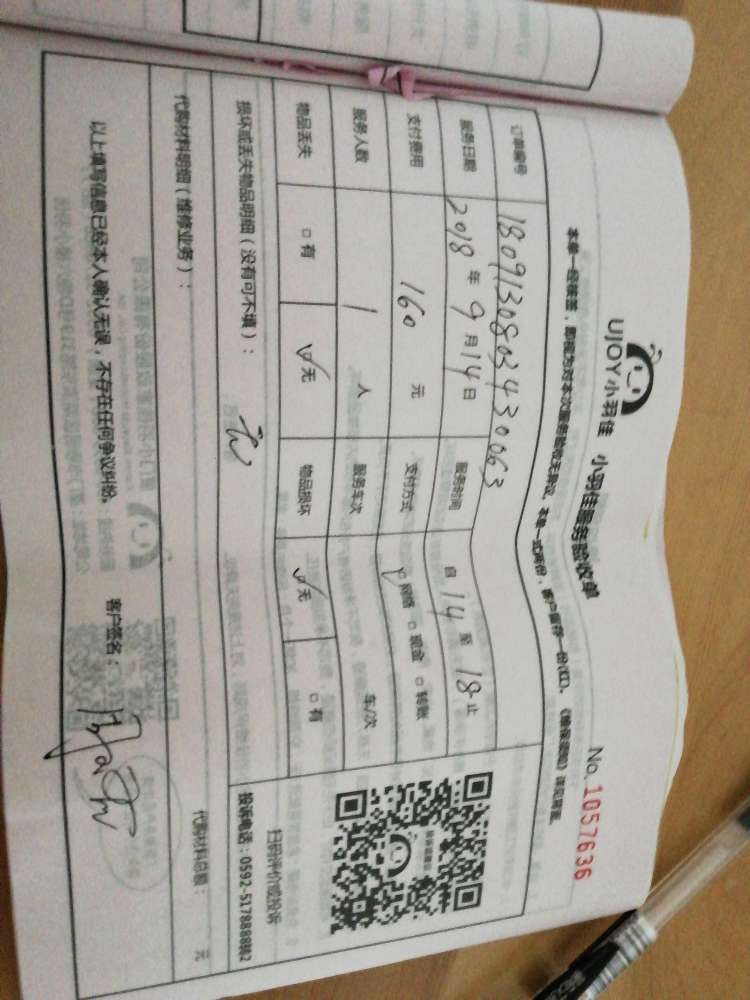 UJOY小羽佳 小羽佳服务验收单
No. 1057636
本单一经签署，即视为对本次服务验收无异议。本单一式两份，客户留存一份(红)。《维保须知》详见背面。
订单编号 180913080343 0063
服务日期 2018年9月14日 服务时间 自14至18止
支付费用 160元 支付方式 ☑网络 □现金 □转账
服务人数 1人 服务车次 车/次
物品丢失 □有 ☑无 物品损坏 ☑无 □有
扫码评价或投诉
投诉电话：0592-5178888转2
损坏或丢失物品明细（没有可不填）：无
代购材料明细（维修业务）：
代购材料总额： 元
以上填写信息已经本人确认无误，不存在任何争议纠纷。 客户签名：